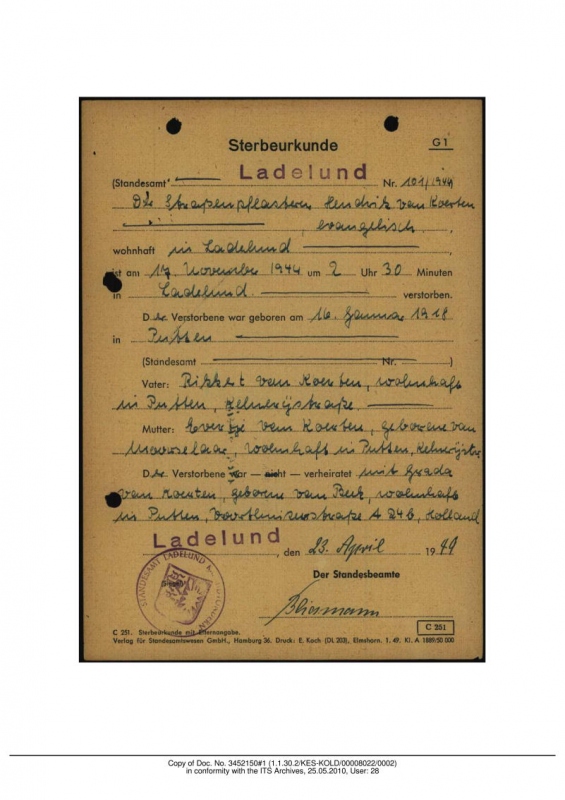 Sterbeurkunde
G 1
(Standesamt Ladelund Nr. 101/1944
Der Straßenpflasterer Hendrik van Koerten
evangelisch,
wohnhaft in Ladelund,
ist am 17. November 1944 um 2 Uhr 30 Minuten
in Ladelund verstorben.
Der Verstorbene war geboren am 16. Januar 1918
in Putten
(Standesamt Nr. )
Vater: Rikkert van Koerten, wohnhaft
in Putten, Kelnerijstraße.
Mutter: Evertje van Koerten, geborene van
Moorselaar, wohnhaft in Putten, Kelnerijstr.
Der Verstorbene war — nicht — verheiratet mit Grada
van Koerten, geborene van Beek, wohnhaft
in Putten, Voorthuizerstraße A 246, Holland
Ladelund, den 23. April 1949
Der Standesbeamte
STANDESAMT LADELUND
C 251
C 251. Sterbeurkunde mit Elternangabe.
Verlag für Standesamtswesen GmbH., Hamburg 36. Druck: E. Koch (DL 203), Elmshorn. 1. 49. Kl. A 1889/50 000
Copy of Doc. No. 3452150#1 (1.1.30.2/KES-KOLD/00008022/0002)
in conformity with the ITS Archives, 25.05.2010, User: 28